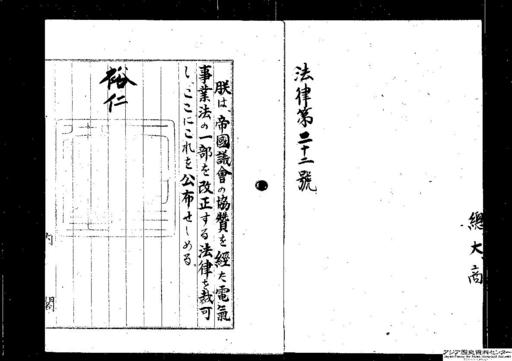 法律第二十二號
總大商
朕は、帝國議會の協贊を經た電氣
事業法の一部を改正する法律を裁可
し、ここにこれを公布せしめる。
裕仁
内閣
アジア歴史資料センター